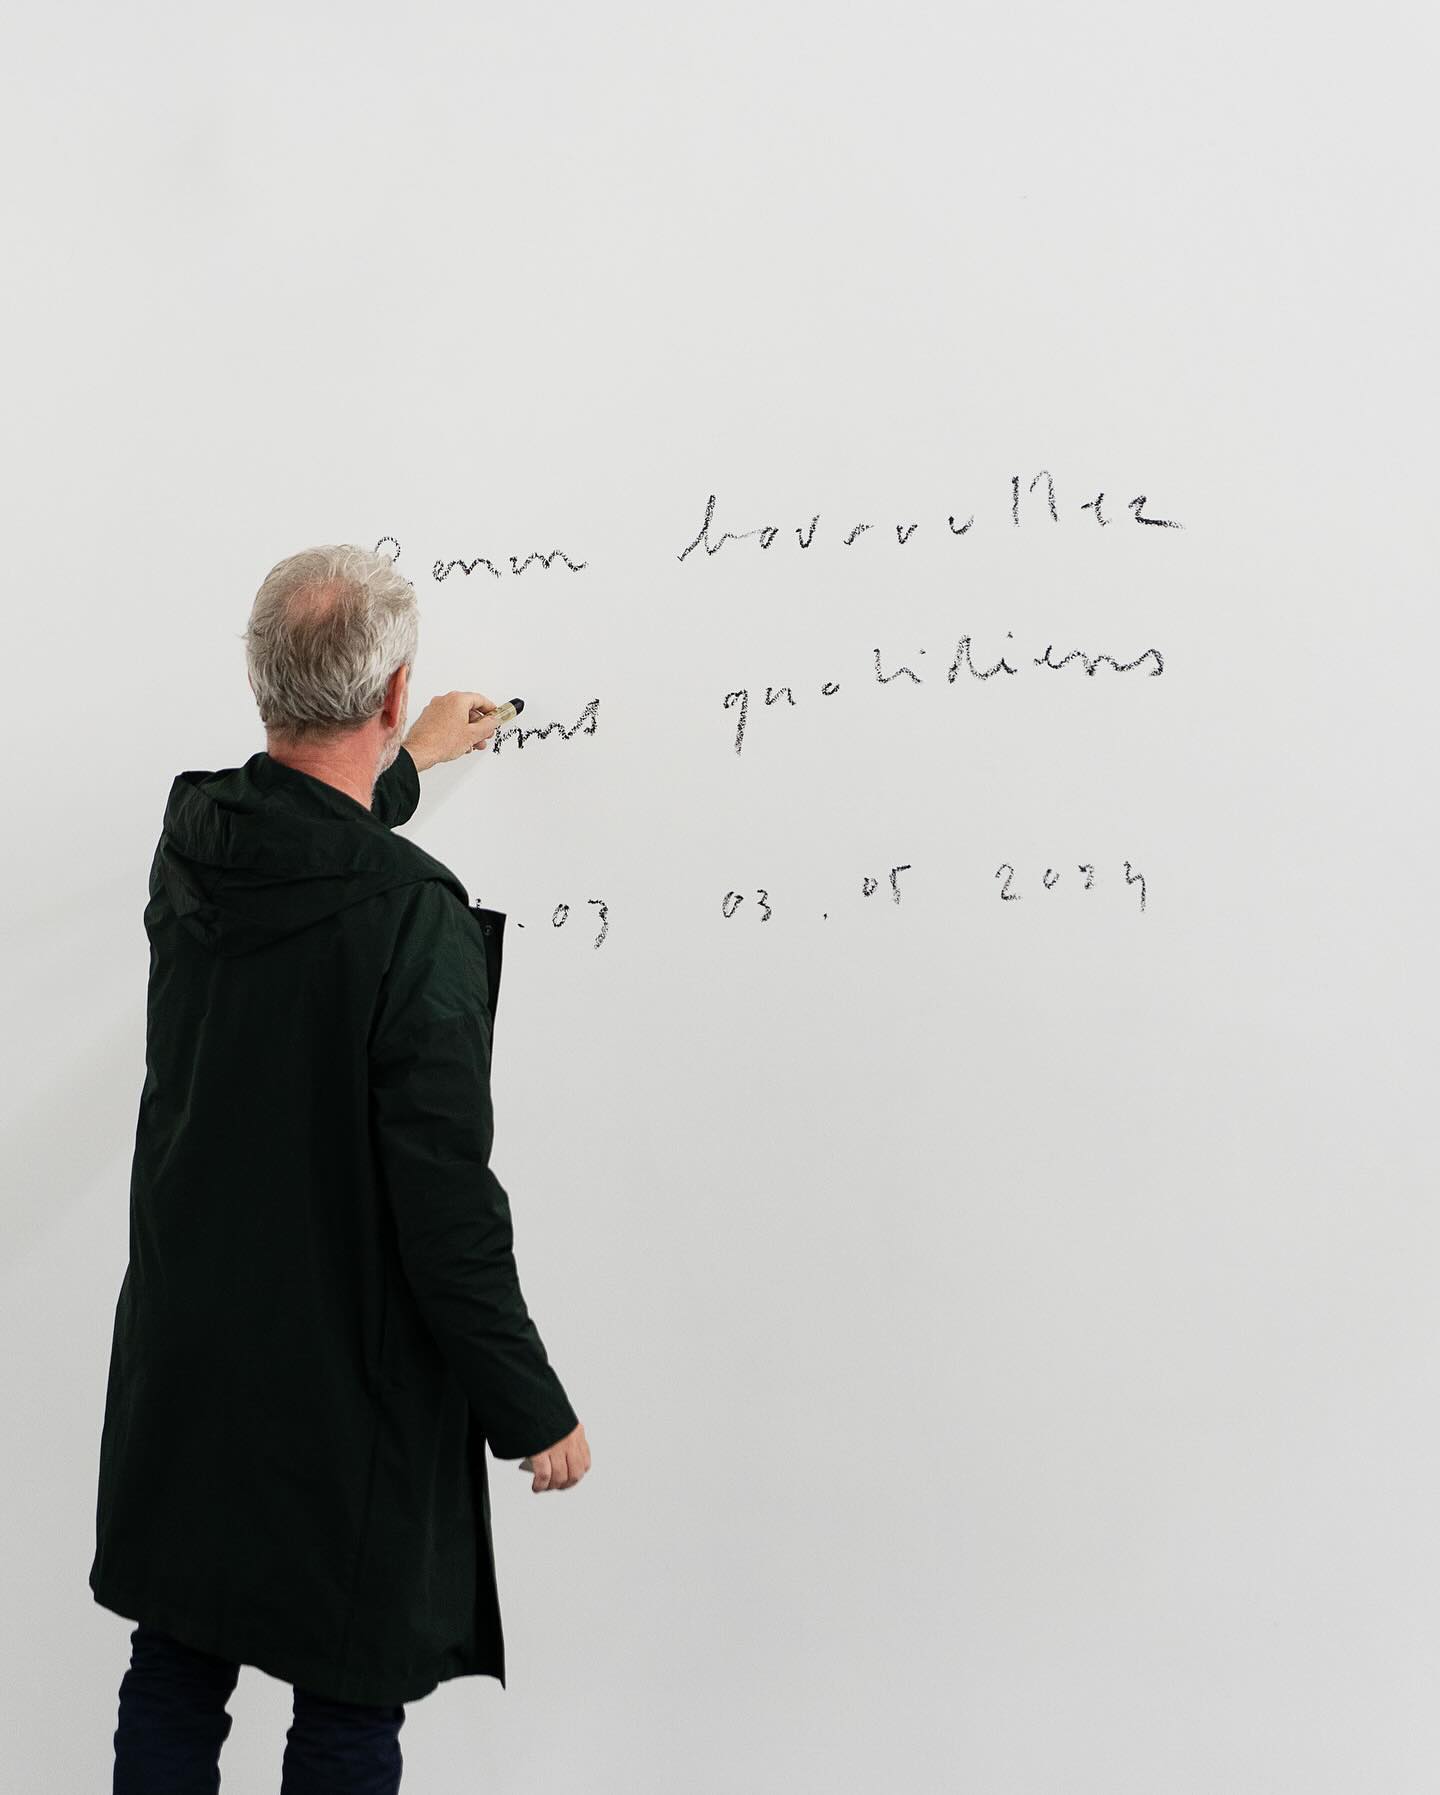 Ronan bouroullec
quotidiens
.03 03.05 2024